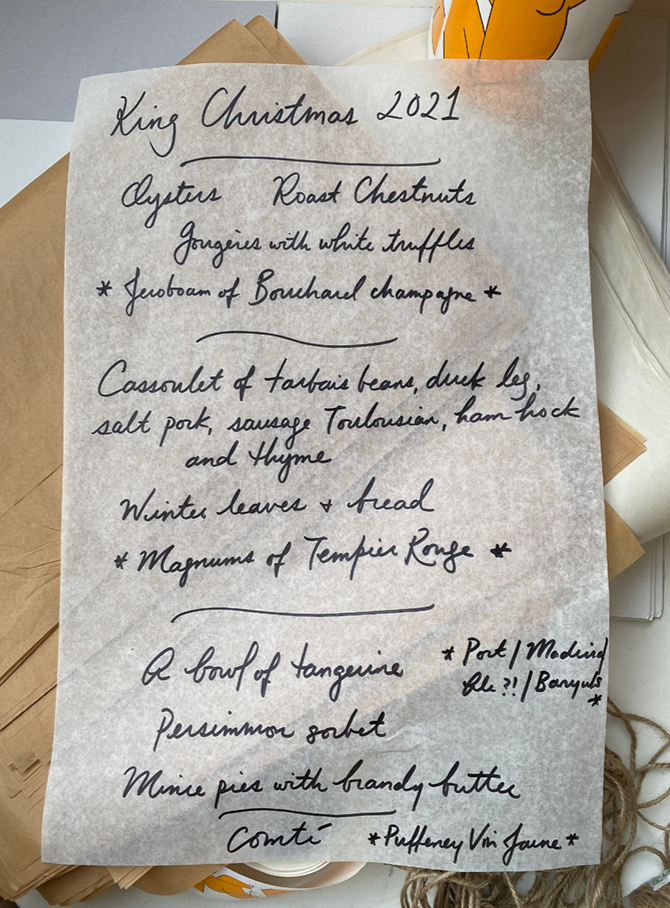 King Christmas 2021
Oysters Roast Chestnuts
Gougères with white truffles
* Jeroboam of Bouchard champagne *
Cassoulet of tarbais beans, duck leg,
salt pork, sausage Toulousian, ham hock
and thyme
Winter leaves + bread
* Magnums of Tempier Rouge *
A bowl of tangerine
* Port / Madeira
Ale ?! / Banyuls *
Persimmon sorbet
Mince pies with brandy butter
Comté *Puffeney Vin Jaune*